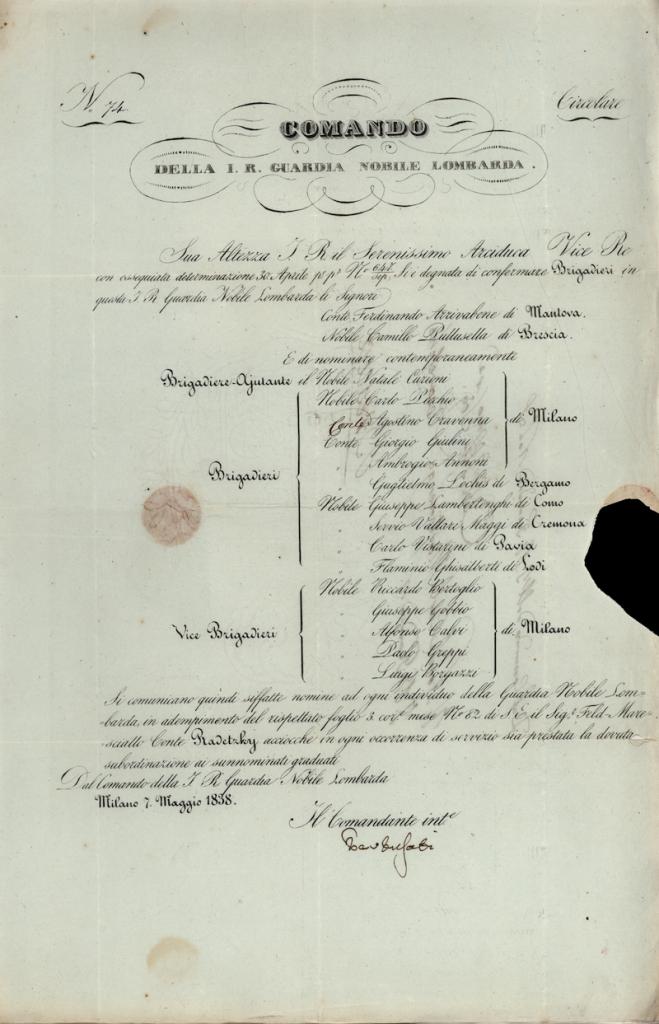 N. 74.
Circolare
COMANDO
DELLA I. R. GUARDIA NOBILE LOMBARDA.
Sua Altezza I. R. il Serenissimo Arciduca Vice Re
con ossequiata determinazione 30 Aprile p.° p.° N.° 647 Si è degnata di confermare Brigadieri in
questa I. R. Guardia Nobile Lombarda li Signori
Conte Ferdinando Arrivabene di Mantova.
Nobile Camillo Pullusella di Brescia.
E di nominare contemporaneamente
Brigadiere-Ajutante il Nobile Natale Curioni
Nobile Carlo Pecchio
Conte Agostino Cravenna
di Milano
Conte Giorgio Giulini
" Ambrogio Annoni
Brigadieri
" Guglielmo Lochis di Bergamo
Nobile Giuseppe Lambertenghi di Como
" Servio Vallari Maggi di Cremona
" Carlo Vistarini di Pavia
" Flaminio Ghisalberti di Lodi
Nobile Riccardo Bertoglio
" Giuseppe Gobbio
Vice Brigadieri
" Alfonso Calvi
di Milano
" Paolo Greppi
" Luigi Borgazzi
Si comunicano quindi siffatte nomine ad ogni individuo della Guardia Nobile Lom-
barda, in adempimento del rispettato foglio 3. corr.e mese N.° 82 di S. E. il Sig.r Feld-Mare-
sciallo Conte Radetzky acciocchè in ogni occorrenza di servizio sia prestata la dovuta
subordinazione ai sunnominati graduati
Dal Comando della I. R. Guardia Nobile Lombarda
Milano 7. Maggio 1838.
Il Comandante int.e